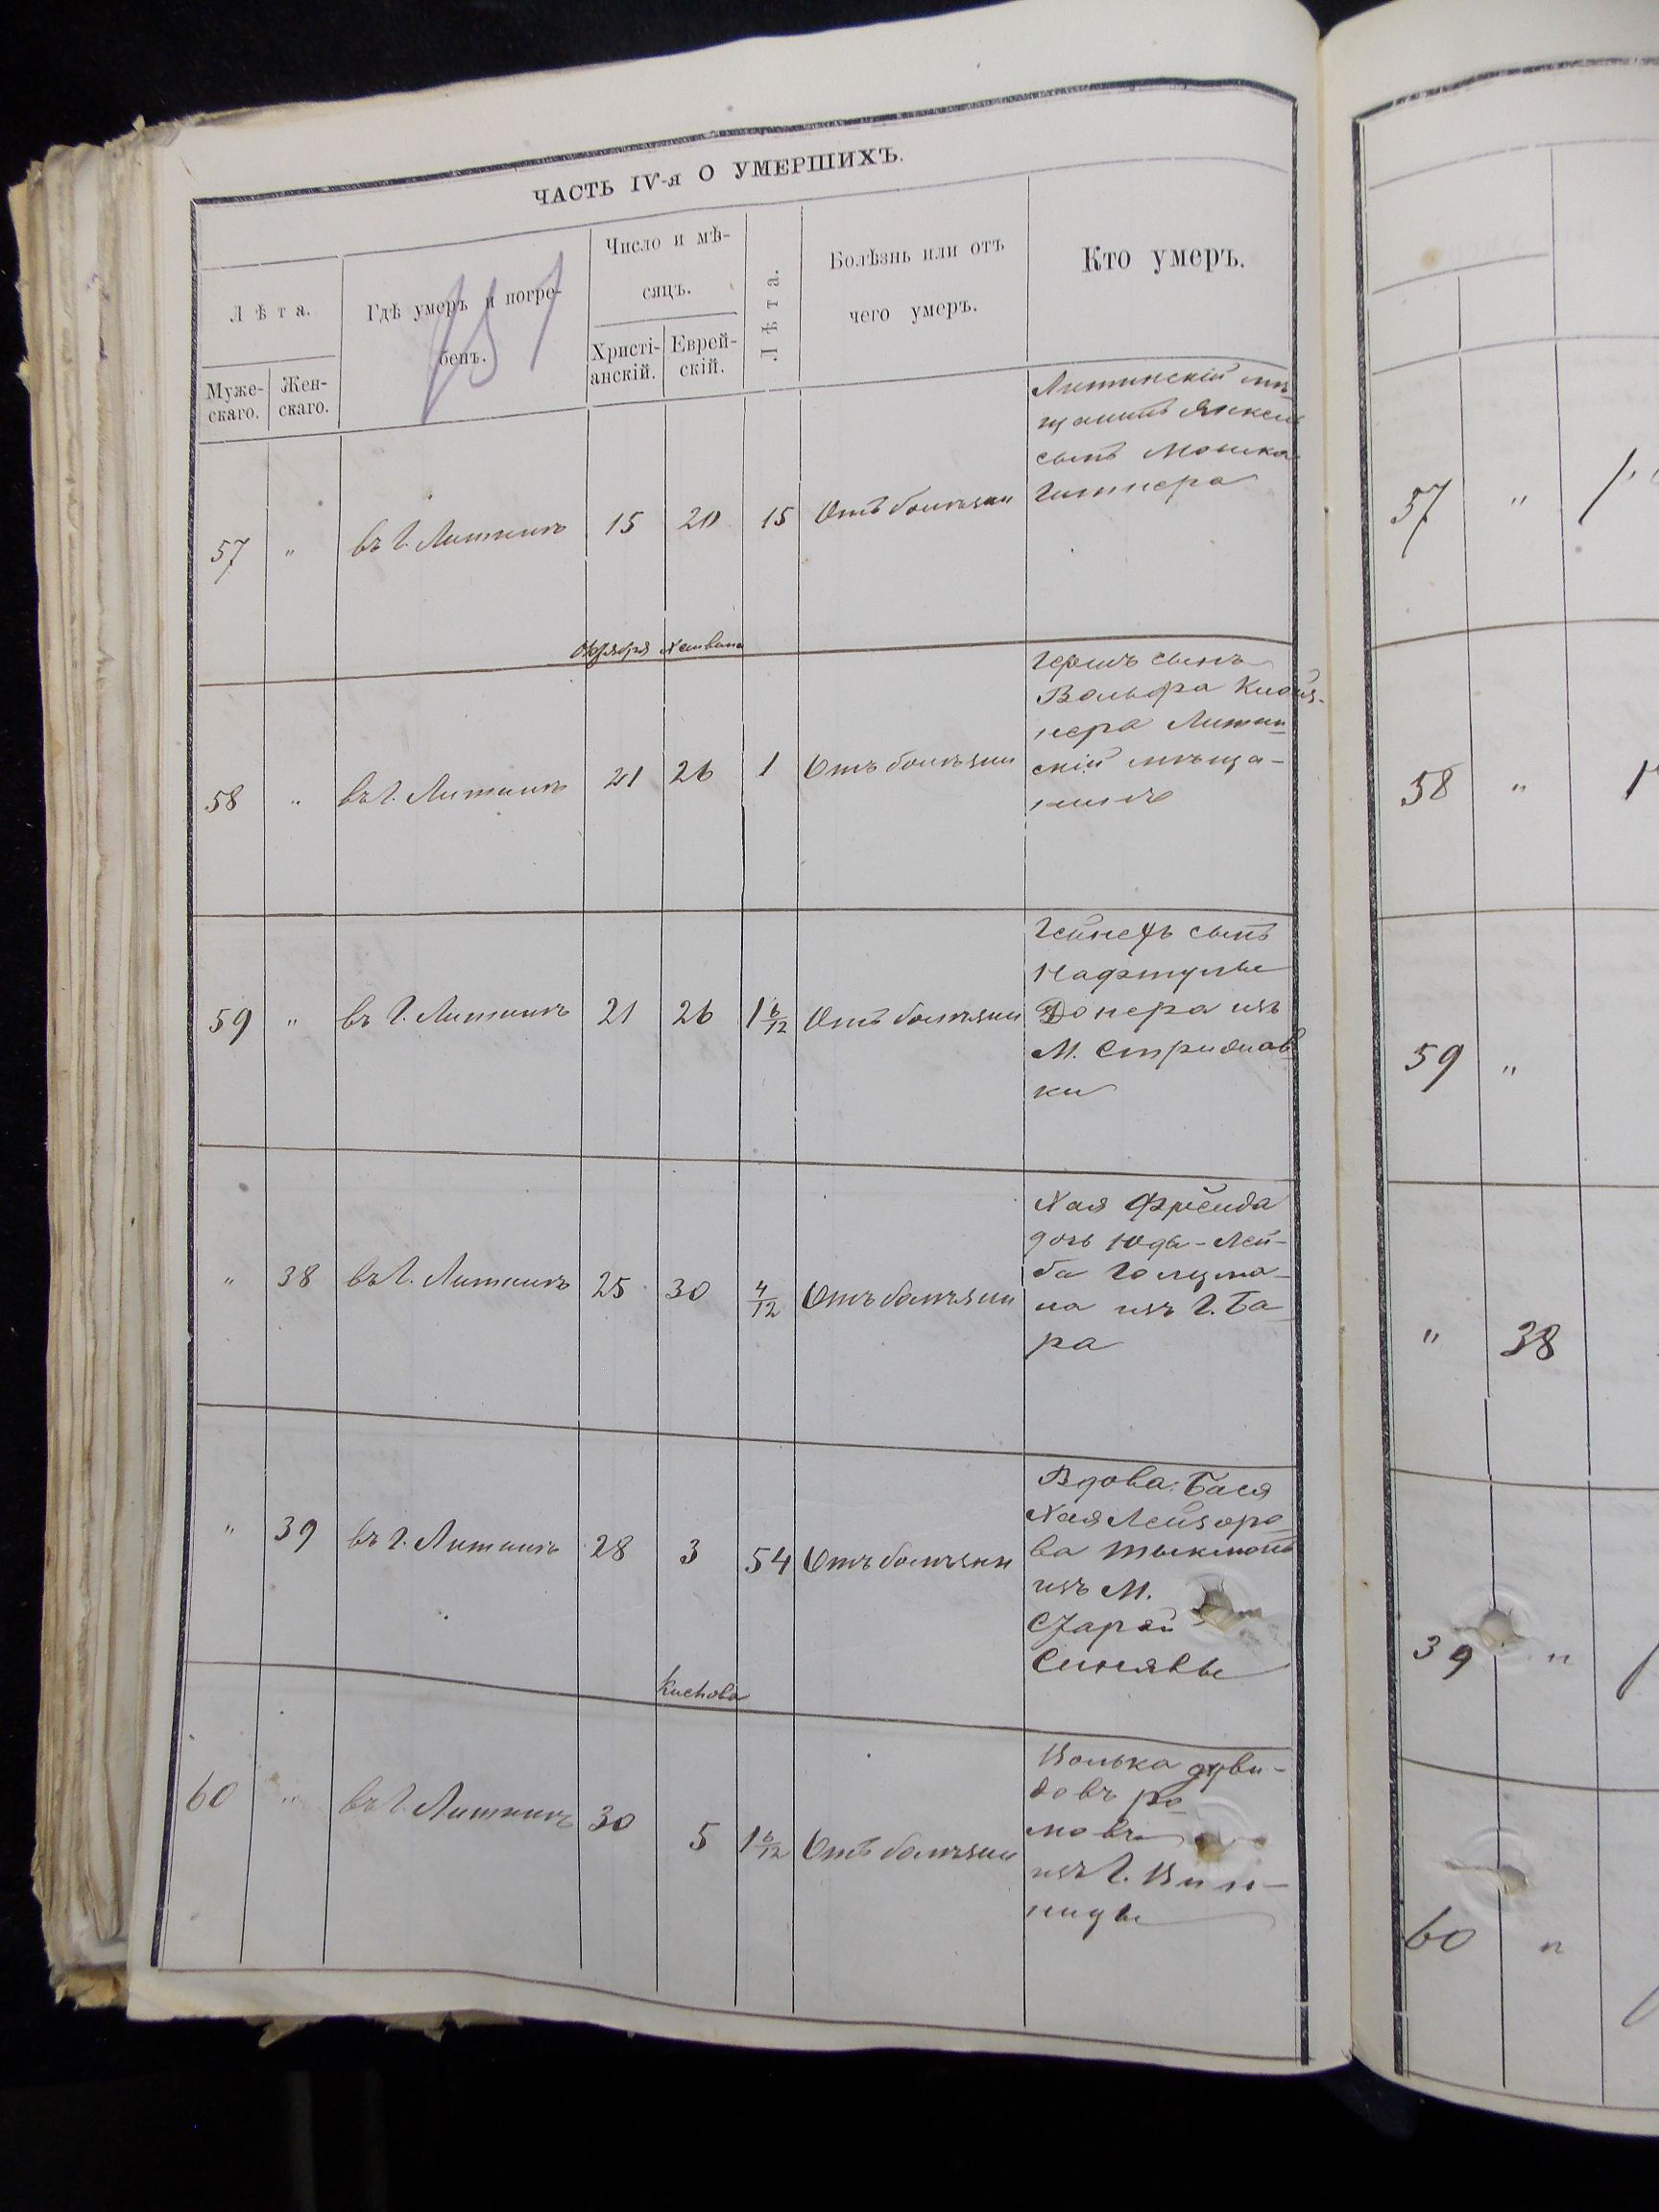 ЧАСТЬ IV-я О УМЕРШИХЪ.
Лѣта.
Муже-
скаго.
Жен-
скаго.
Гдѣ умеръ и погре-
бенъ.
Число и мѣ-
сяцъ.
Христі-
анскій.
Еврей-
скій.
Лѣта.
Болѣзнь или отъ
чего умеръ.
Кто умеръ.
57 " въ Г. Литинѣ 15 20 15 Отъ болѣзни
Литинскій мѣ-
щанинъ
сынъ Мошка
58 " въ Г. Литинѣ 21 26 1 Отъ болѣзни
Октября Хешвана
Гершъ сынъ
Вольфа
нера Литин-
скій мѣща-
нинъ
59 " въ Г. Литинѣ 21 26 1 6/12 Отъ болѣзни
сынъ
Нафтулы
Донера изъ
М. Стрижав-
ки
" 38 въ Г. Литинѣ 25 30 4/12 Отъ болѣзни
Хая Фрейда
дочь Юды-Лей-
ба Голцма-
на изъ Г. Ба-
ра
" 39 въ Г. Литинѣ 28 3 54 Отъ болѣзни
Вдова Бася
Хая Лейзоро-
ва
изъ М.
Старой
Синявы
60 " въ Г. Литинѣ 30 5 1 6/12 Отъ болѣзни
Кислова
Волька Дуви-
довъ
изъ Г. Вин-
ницы
37 "
58 "
59 "
" 38
39 "
60 "